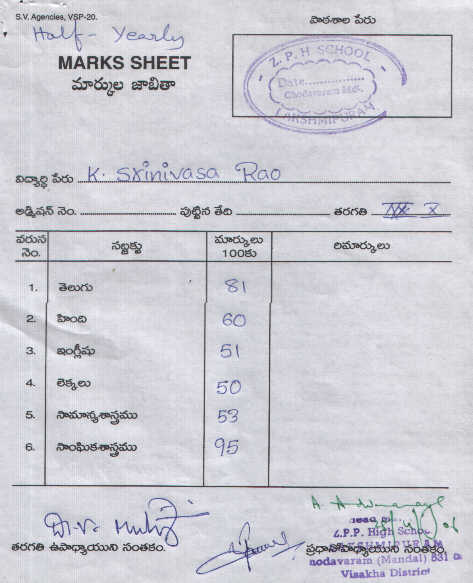 S.V. Agencies, VSP-20.
Half - Yearly
పాఠశాల పేరు
MARKS SHEET
మార్కుల జాబితా
Z. P. H SCHOOL
Date................
Chodavaram Mdl.
LAKSHMIPURAM
విద్యార్థి పేరు K. Srinivasa Rao
అడ్మిషన్ నెం. పుట్టిన తేది తరగతి X
వరుస నెం. సబ్జక్టు మార్కులు 100కు రిమార్కులు
1. తెలుగు 81
2. హింది 60
3. ఇంగ్లీషు 51
4. లెక్కలు 50
5. సామాన్యశాస్త్రము 53
6. సాంఘికశాస్త్రము 95
Z.P.P. High School
LAKSHMIPURAM
తరగతి ఉపాధ్యాయుని సంతకం. ప్రధానోపాధ్యాయుని సంతకం.
nodavaram (Mandal) 531 0
Visakha District